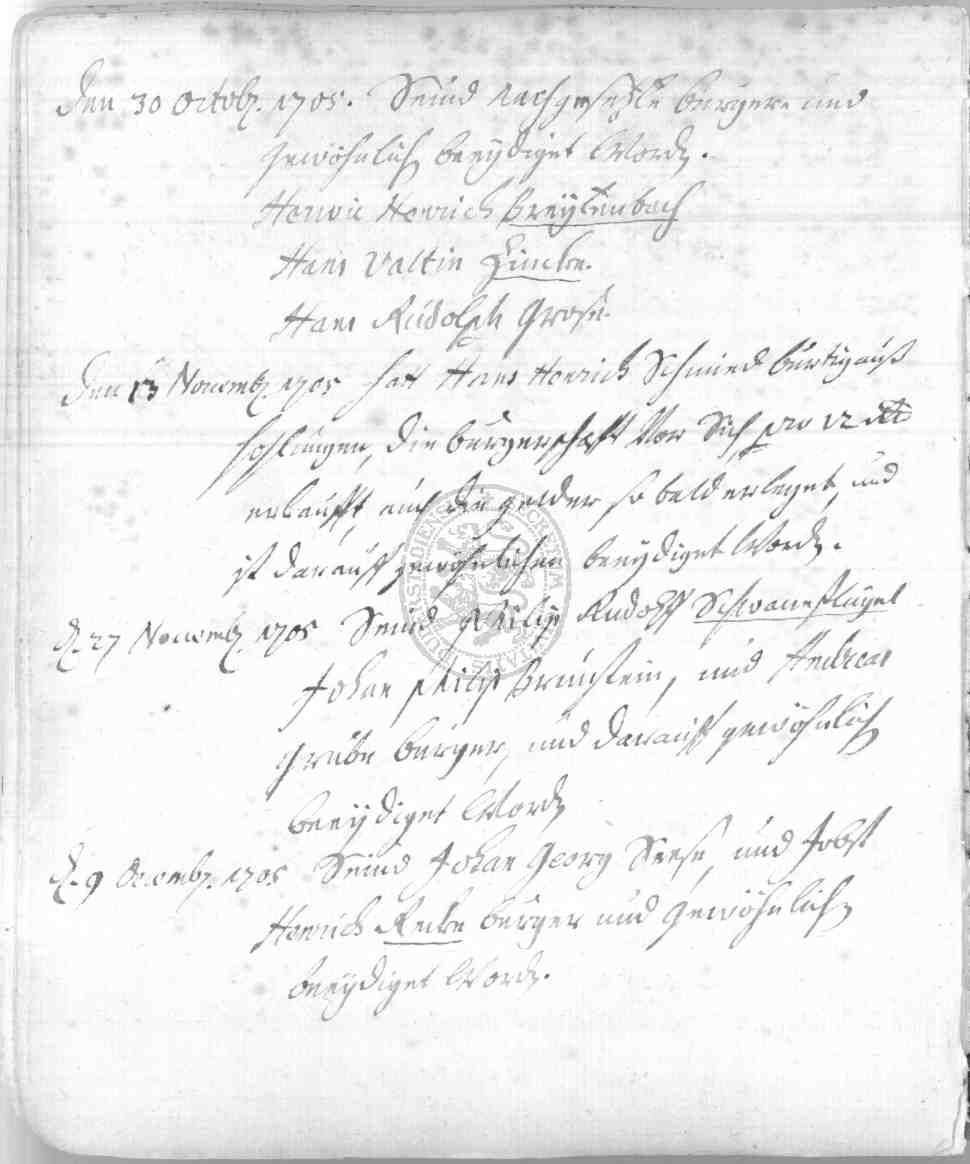 Den 30 Octobr. 1705. Seind Nachgesetzte bürger und
gewöhnlich beeydiget Word.
Henrich Breytenbach
Hans Valtin Fincke.
Hans Rudolph Grose
Den 13 Novembr. 1705 hatt Hans Henrich Schmied bürtig auß
die bürgerschafft Vor Sich pro 12
erkaufft, auch die gelder so bald erleget, und
ist darauff gewöhnlichen beeydiget Word.
D. 27 Novembr. 1705 Seind Philip Rudolff Schwaneflügel
Johan Philip Brunstein, und Andreas
Grübe bürger, und darauff gewöhnlich
beeydiget Word
D. 9 Decembr. 1705 Seind Johan Georg Seese, und Jobst
Henrich Recke bürger und gewöhnlich
beeydiget Word.